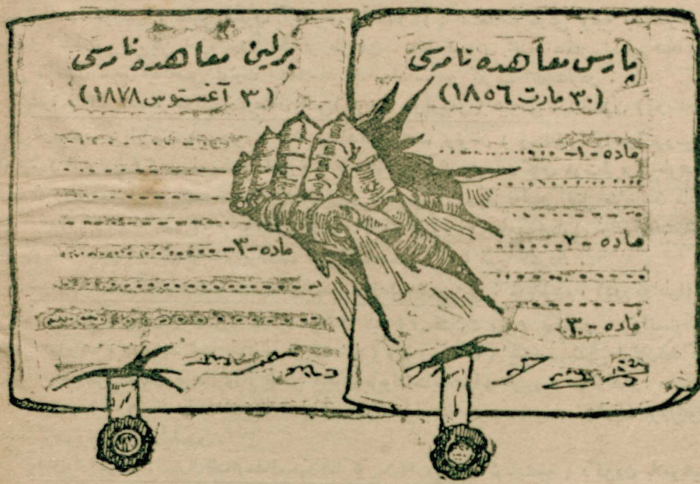 پارس معاهده نامه‌سی
(٣٠ مارت ١٨٥٦)
ماده -١-
ماده -٢-
ماده -٣-
برلین معاهده نامه‌سی
(٣ آغستوس ١٨٧٨)
ماده -٣-